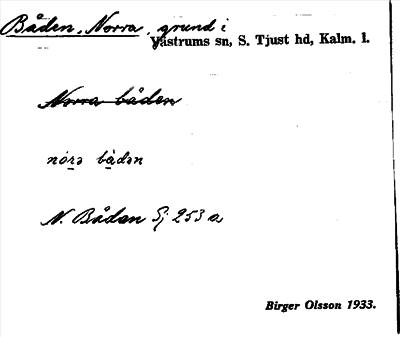 Båden, Norra, grund i
Västrums sn, S. Tjust hd, Kalm. l.
Norra båden
nórə bådən
N. Bådan Sj 253 a
Birger Olsson 1933.